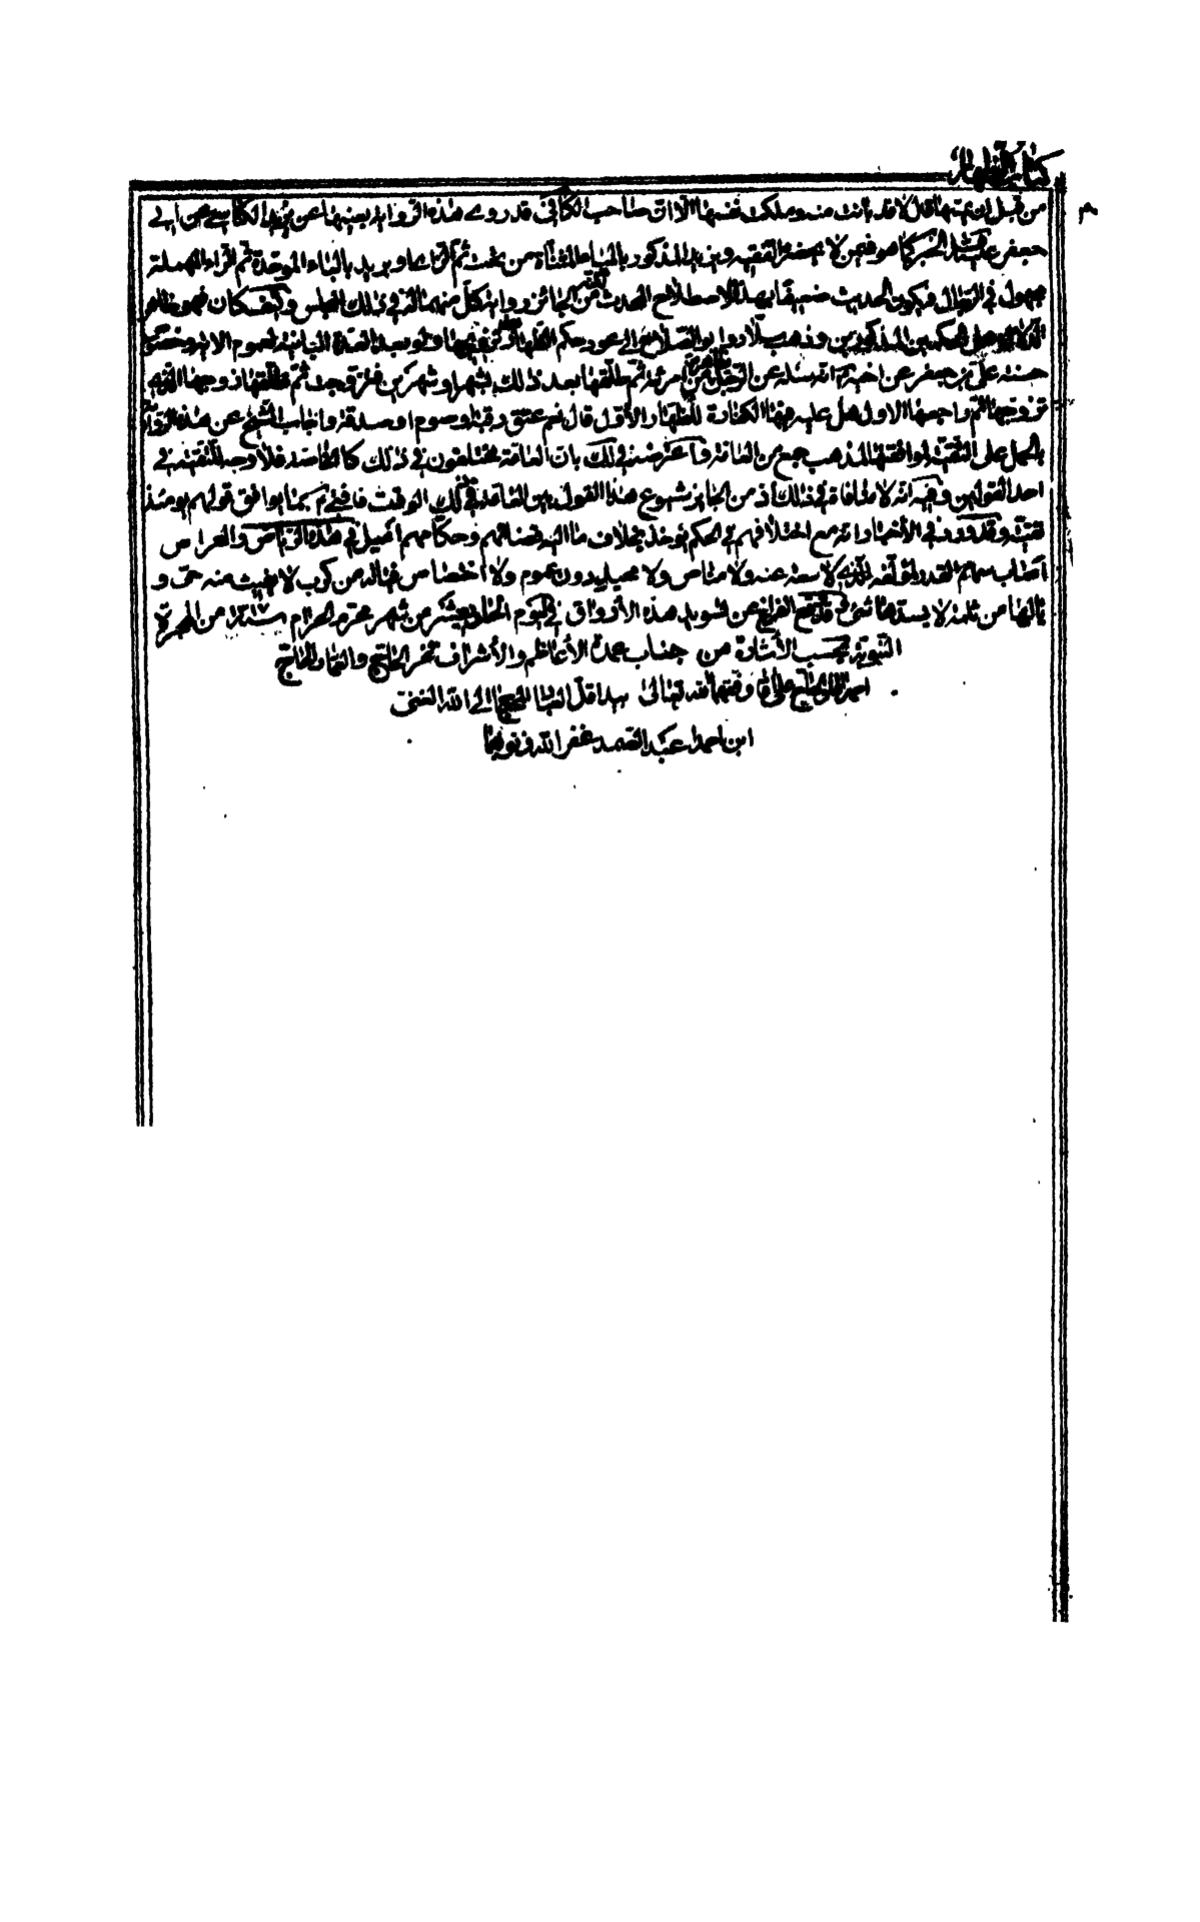 كتاب الظهار
من قبل ان يمسها قال لا قد بانت منه وملكت نفسها الا ان صاحب الكافي قد روى هذه الرواية بعينها عن يزيد الكناسي عن ابي
جعفر عليه السلام كما هو فيمن لا يحضره الفقيه ويزيد المذكور بالياء المثناة من تحت ثم الزاء او بريد بالباء الموحدة ثم الراء المهملة
مجهول في الرجال فيكون الحديث ضعيفا بهذا الاصطلاح الحديث من الجائز رواية كل منهما الذي في ذلك المجلس وكيف كان فهو ظاهر
الحكمين المذكورين وذهب سلار وابو الصلاح الى عود حكم الظهار لو تزوجها ولو بعد العدة البائنة لعموم الاية وخصوص
حسنة علي بن جعفر عن اخيه انه سئله عن الرجل ظاهر من امرئته ثم طلقها بعد ذلك بشهر او شهرين فتزوجت ثم طلقها زوجها الذي
تزوجها ثم راجعها الاول هل عليه فيها الكفارة للظهار الاول قال نعم عتق رقبة او صوم او صدقة واجاب الشيخ عن هذه الرواية
بالحمل على التقية لموافقتها لمذهب جمع من العامة واعترضه في ذلك بان العامة مختلفون في ذلك كالخاصة فلا وجه للتقية في
احد القولين وفيه انه لا منافاة في ذلك اذ من الجايز شيوع هذا القول بين العامة في ذلك الوقت فافتى بما يوافق قولهم يومئذ
تقية وقد ورد في الأخبار انه مع اختلافهم في الحكم يؤخذ بخلاف ما اليه قضاتهم وحكامهم اميل في هذه الرياض والغراض
اصاب سهام القدر لمؤلفه الذي لا سعة عنه ولا مناص ولا محيل بدون عموم ولا اختصاص فياله من كرب لا يغيث منه حمى و
يالها من ثلمة لا يسدها شئ قد وقع الفراغ عن تسويد هذه الأوراق في اليوم الحادي عشر من شهر محرم الحرام سنة من الهجرة
النبوية بحسب الأشارة من جناب عمدة الأعاظم والأشراف فخر الحاج والعمار الحاج
بيد اقل العباد المحتاج الى الله الغني
ابن احمد عبد الصمد غفر الله ذنوبهما